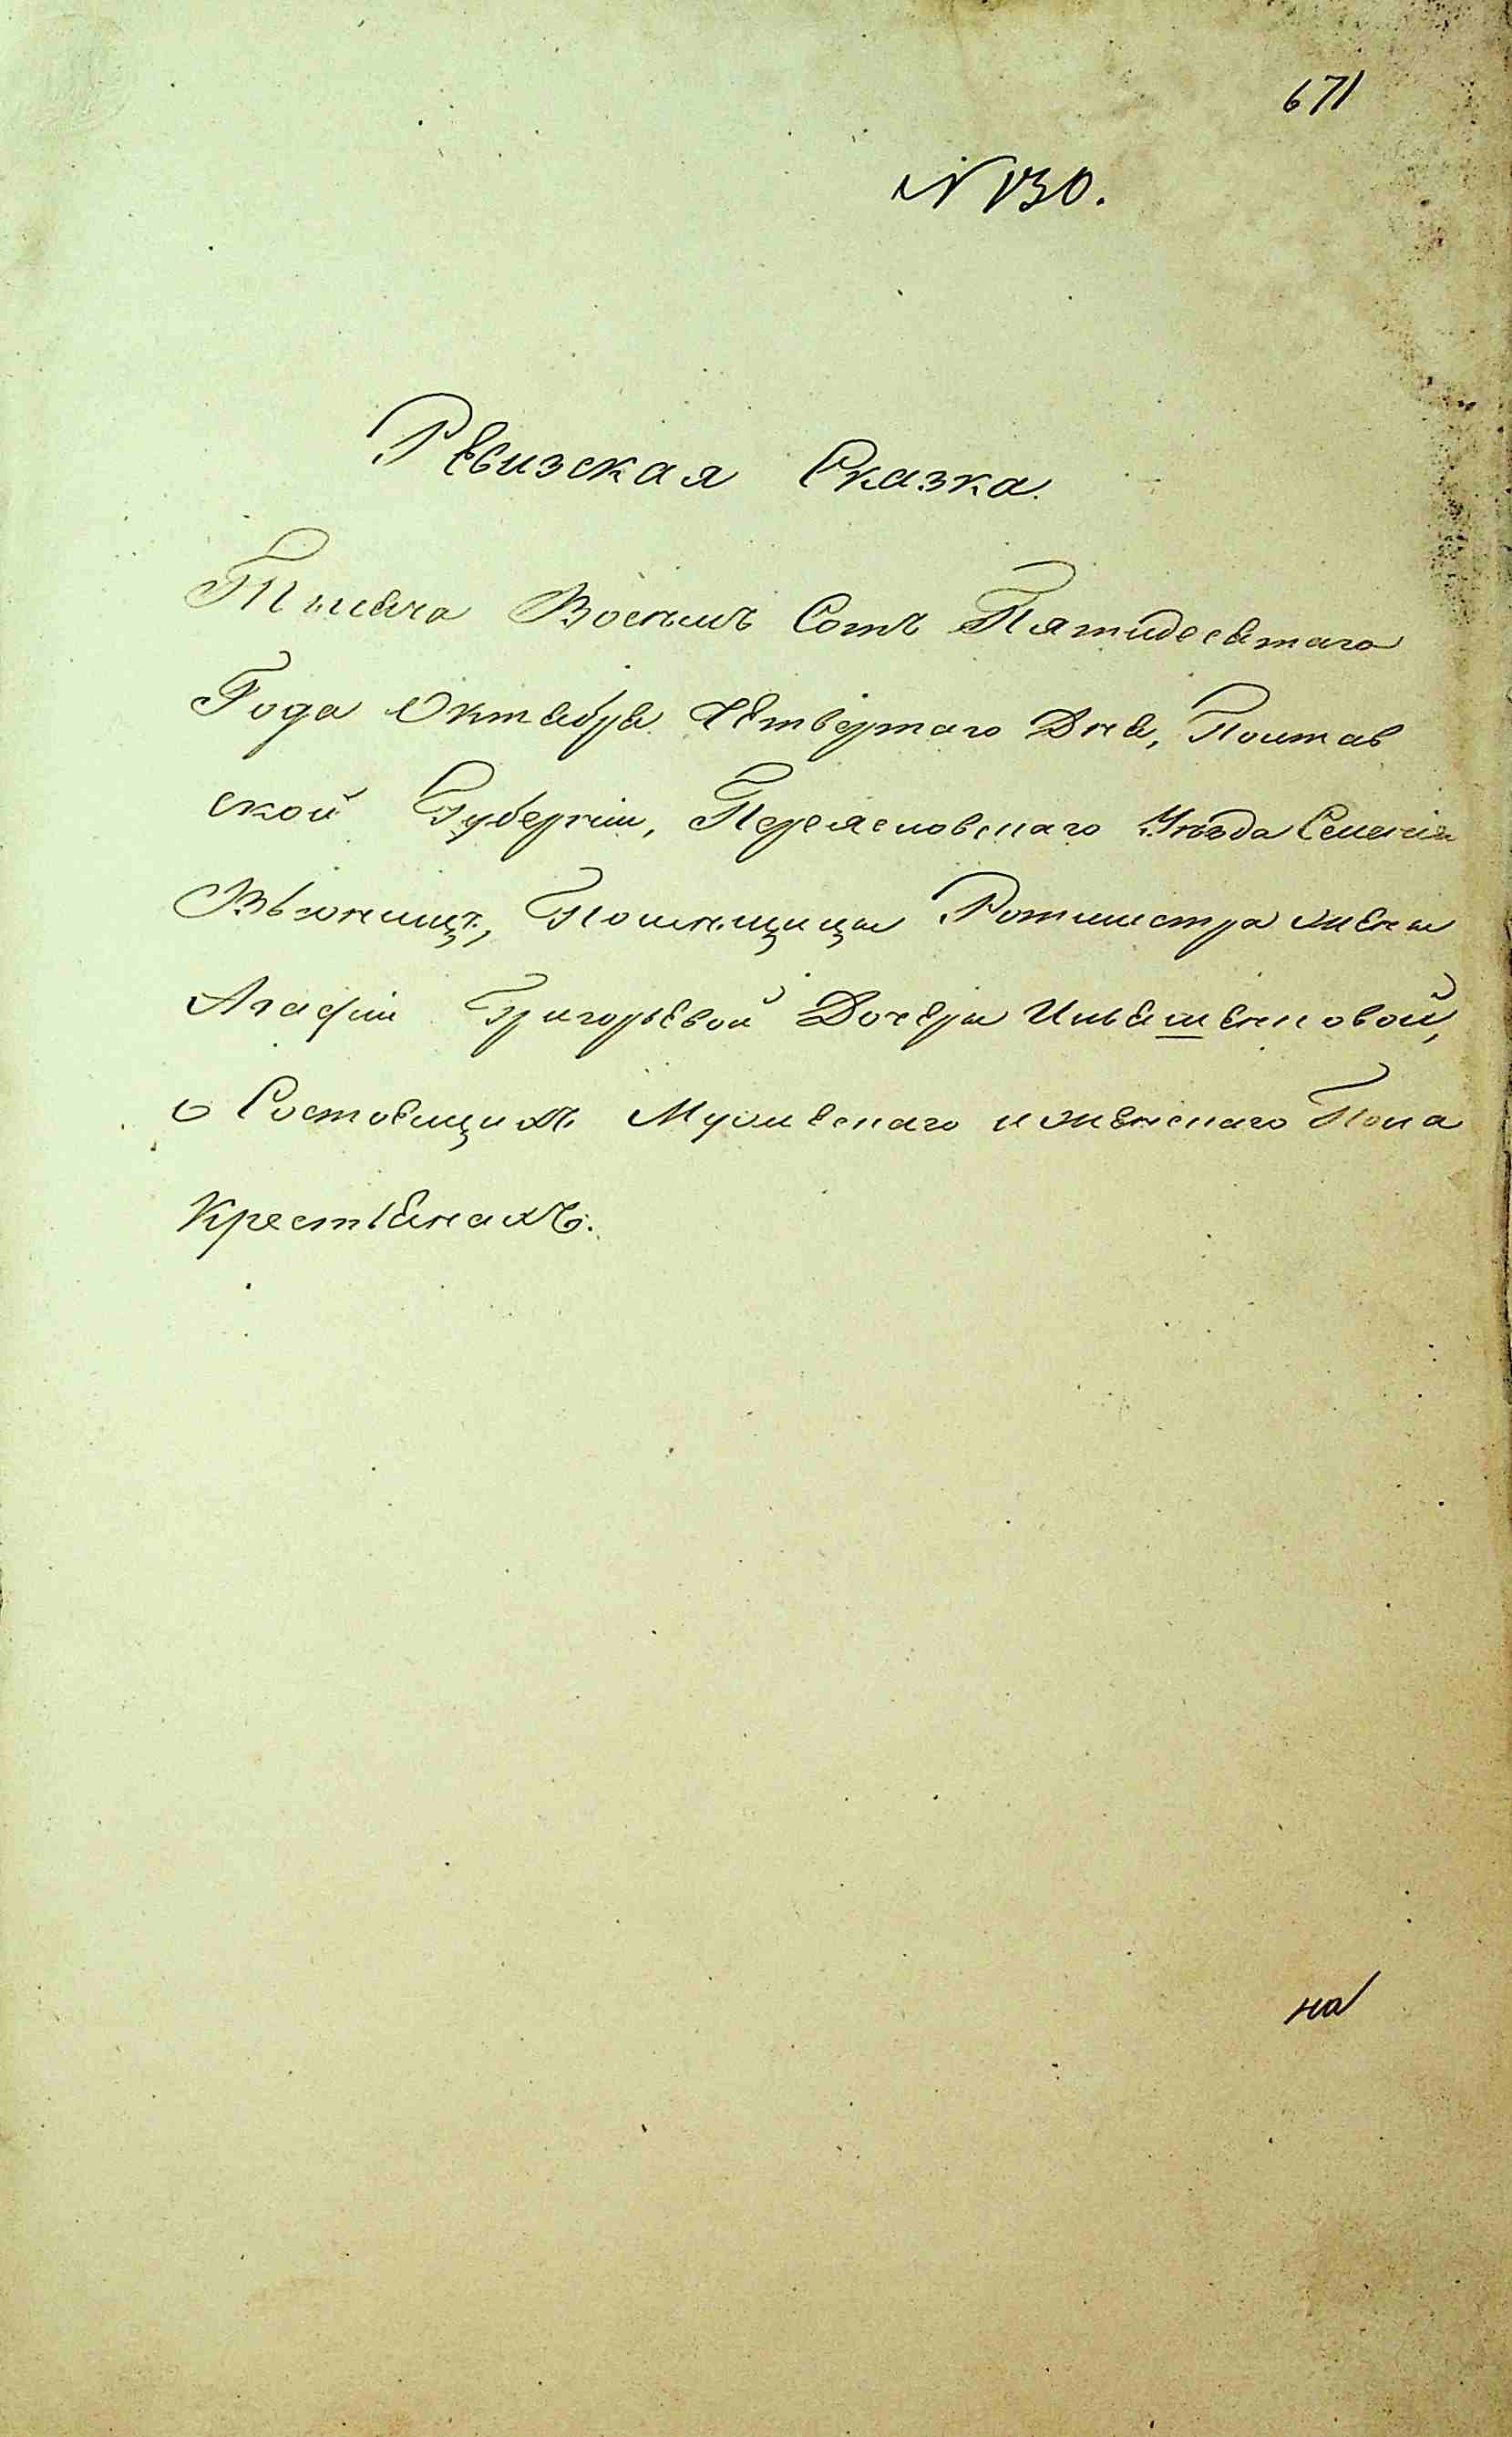 671
№ 130.
Ревизская Сказка.
Тысяча Восемь Сотъ Пятидесятаго
Года Октября Четвертаго Дня, Полтав
ской Губерніи, Переясловскаго Уѣзда Селенія
Вьюнищъ, Помѣщицы Ротмистра жены
Агафіи Григорьевой Дочери Ильяшенковой,
о Состоящихъ Мужескаго и женскаго Пола
Крестьянахъ.
на